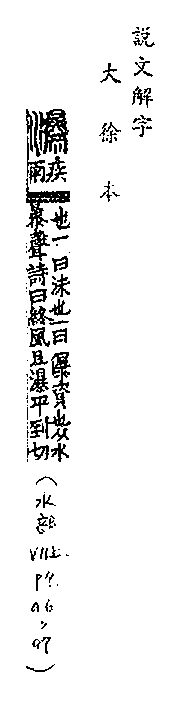 說文解字
大徐本
瀑
疾
雨
也一曰沫也一曰瀑資也从水
暴聲詩曰終風且瀑平到切
(水部